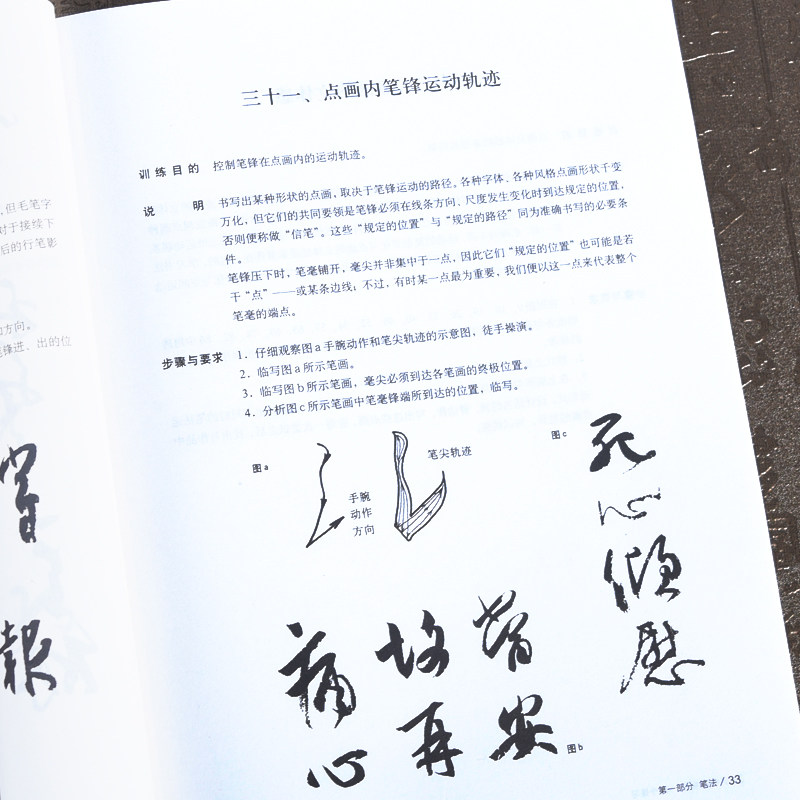 ，但毛笔字
对于接续下
后的行笔影
方向。
锋进、出的位
報
三十一、点画内笔锋运动轨迹
训练目的 控制笔锋在点画内的运动轨迹。
说 明 书写出某种形状的点画，取决于笔锋运动的路径。各种字体、各种风格点画形状千变
万化，但它们的共同要领是笔锋必须在线条方向、尺度发生变化时到达规定的位置，
否则便称做“信笔”。这些“规定的位置”与“规定的路径”同为准确书写的必要条
件。
笔锋压下时，笔毫铺开，毫尖并非集中于一点，因此它们“规定的位置”也可能是若
干“点”——或某条边线；不过，有时某一点最为重要，我们便以这一点来代表整个
笔毫的端点。
步骤与要求 1．仔细观察图a手腕动作和笔尖轨迹的示意图，徒手操演。
2．临写图a所示笔画。
3．临写图b所示笔画，毫尖必须到达各笔画的终极位置。
4．分析图c所示笔画中笔毫锋端所到达的位置，临写。
图a
手腕
动作
方向
笔尖轨迹
图c
死
心
倾
慰
病
心
再
安
图b
第一部分 笔法 / 33